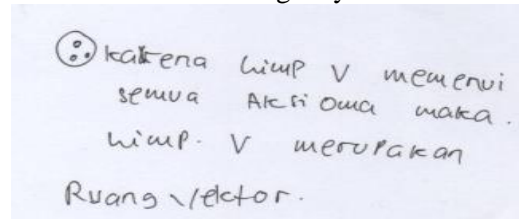 ∴ karena himp V memenui
semua Aksioma maka.
himp. V merupakan
Ruang Vektor.